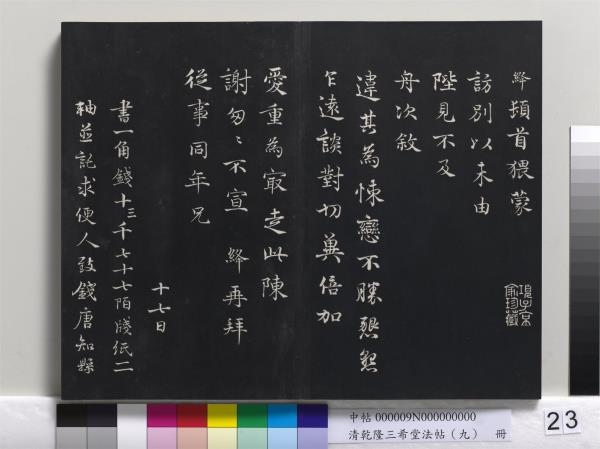 絳頓首猥蒙
訪別以未由
陛見不及
舟次敘
違其為悚戀不勝懇懇
乍遠談對切冀倍加
愛重為寂走此陳
謝匆匆不宣 絳再拜
從事同年兄
十七日
書一角錢十三千七十七陌牋紙二
軸並託求便人致錢唐知縣
項子京
家珍藏
中帖 000009N000000000
清乾隆三希堂法帖（九） 冊
23